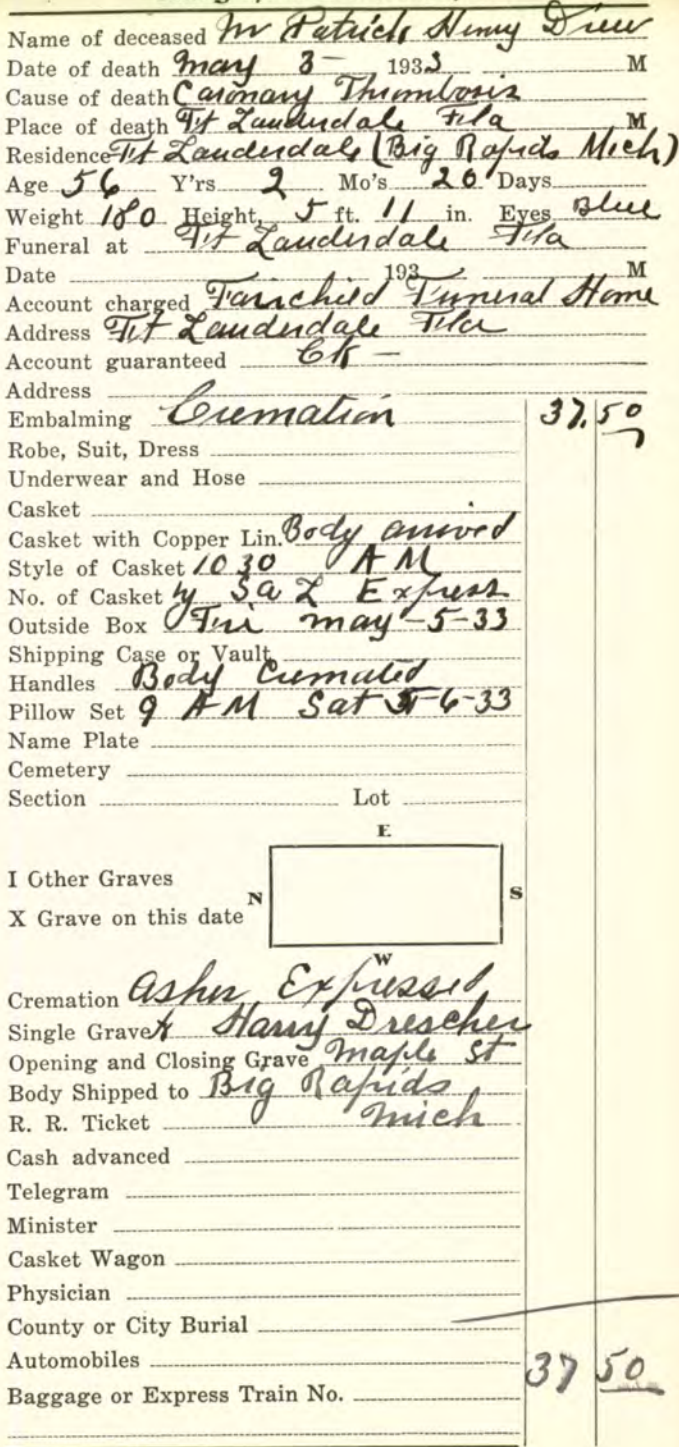 Name of deceased Mr Patrick Henry Drew
Date of death May 3 - 1933 M
Cause of death Coronary Thrombosis
Place of death Ft Lauderdale Fla M
Residence Ft Lauderdale (Big Rapids Mich)
Age 56 Y'rs 2 Mo's 20 Days
Weight 180 Height, 5 ft. 11 in. Eyes Blue
Funeral at Ft Lauderdale Fla
Date 193 M
Account charged Fairchild Funeral Home
Address Ft Lauderdale Fla
Account guaranteed Ck -
Address
Embalming Cremation 37.50
Robe, Suit, Dress
Underwear and Hose
Casket
Casket with Copper Lin. Body arrived
Style of Casket 10 30 A M
No. of Casket by S a L Express
Outside Box Fri May - 5 - 33
Shipping Case or Vault
Handles Body Cremated
Pillow Set 9 A M Sat 5-6-33
Name Plate
Cemetery
Section Lot
E
I Other Graves
N S
X Grave on this date
W
Cremation Ashes Expressed
Single Grave to Harry Drescher
Opening and Closing Grave Maple St
Body Shipped to Big Rapids
R. R. Ticket Mich
Cash advanced
Telegram
Minister
Casket Wagon
Physician
County or City Burial
Automobiles 37 50
Baggage or Express Train No.